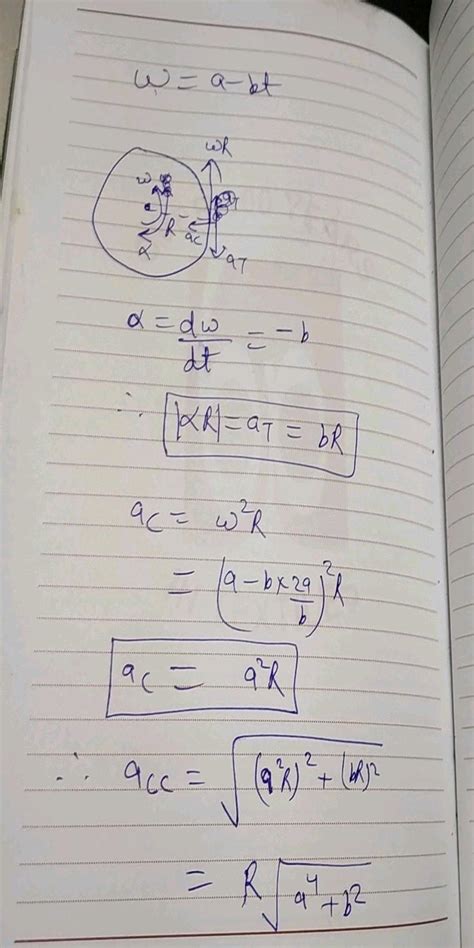 ω = a-bt
ωR
ω
R
ac
α
aT
α = dω/dt = -b
∴ |αR| = aT = bR
ac = ω²R
= (a - b × 2a/b)²R
ac = a²R
∴ acc = √((a²R)² + (bR)²)
= R√(a⁴+b²)